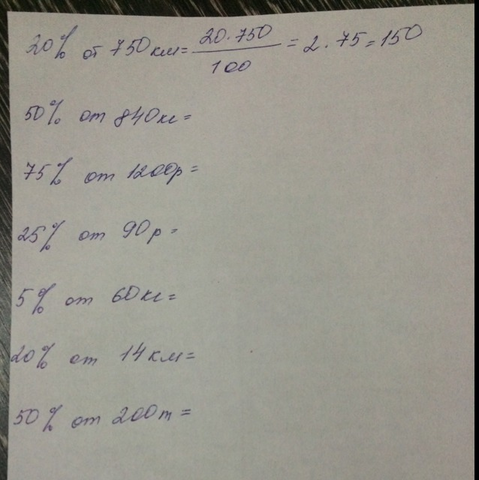 20% от 750км = 20·750/100 = 2·75=150
50% от 840кг=
75% от 1200р=
25% от 90р=
5% от 60кг=
20% от 14км=
50% от 200т=